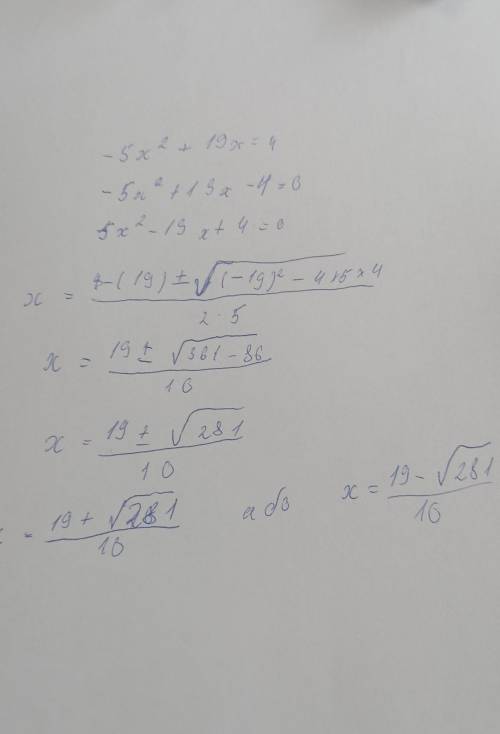 -5x² + 19x = 4
-5x² + 19x - 4 = 0
5x² - 19x + 4 = 0
x = -(19) ± √(-19)² - 4×5×4 / 2·5
x = 19 ± √361 - 80 / 10
x = 19 ± √281 / 10
x = 19 + √281 / 10 або x = 19 - √281 / 10